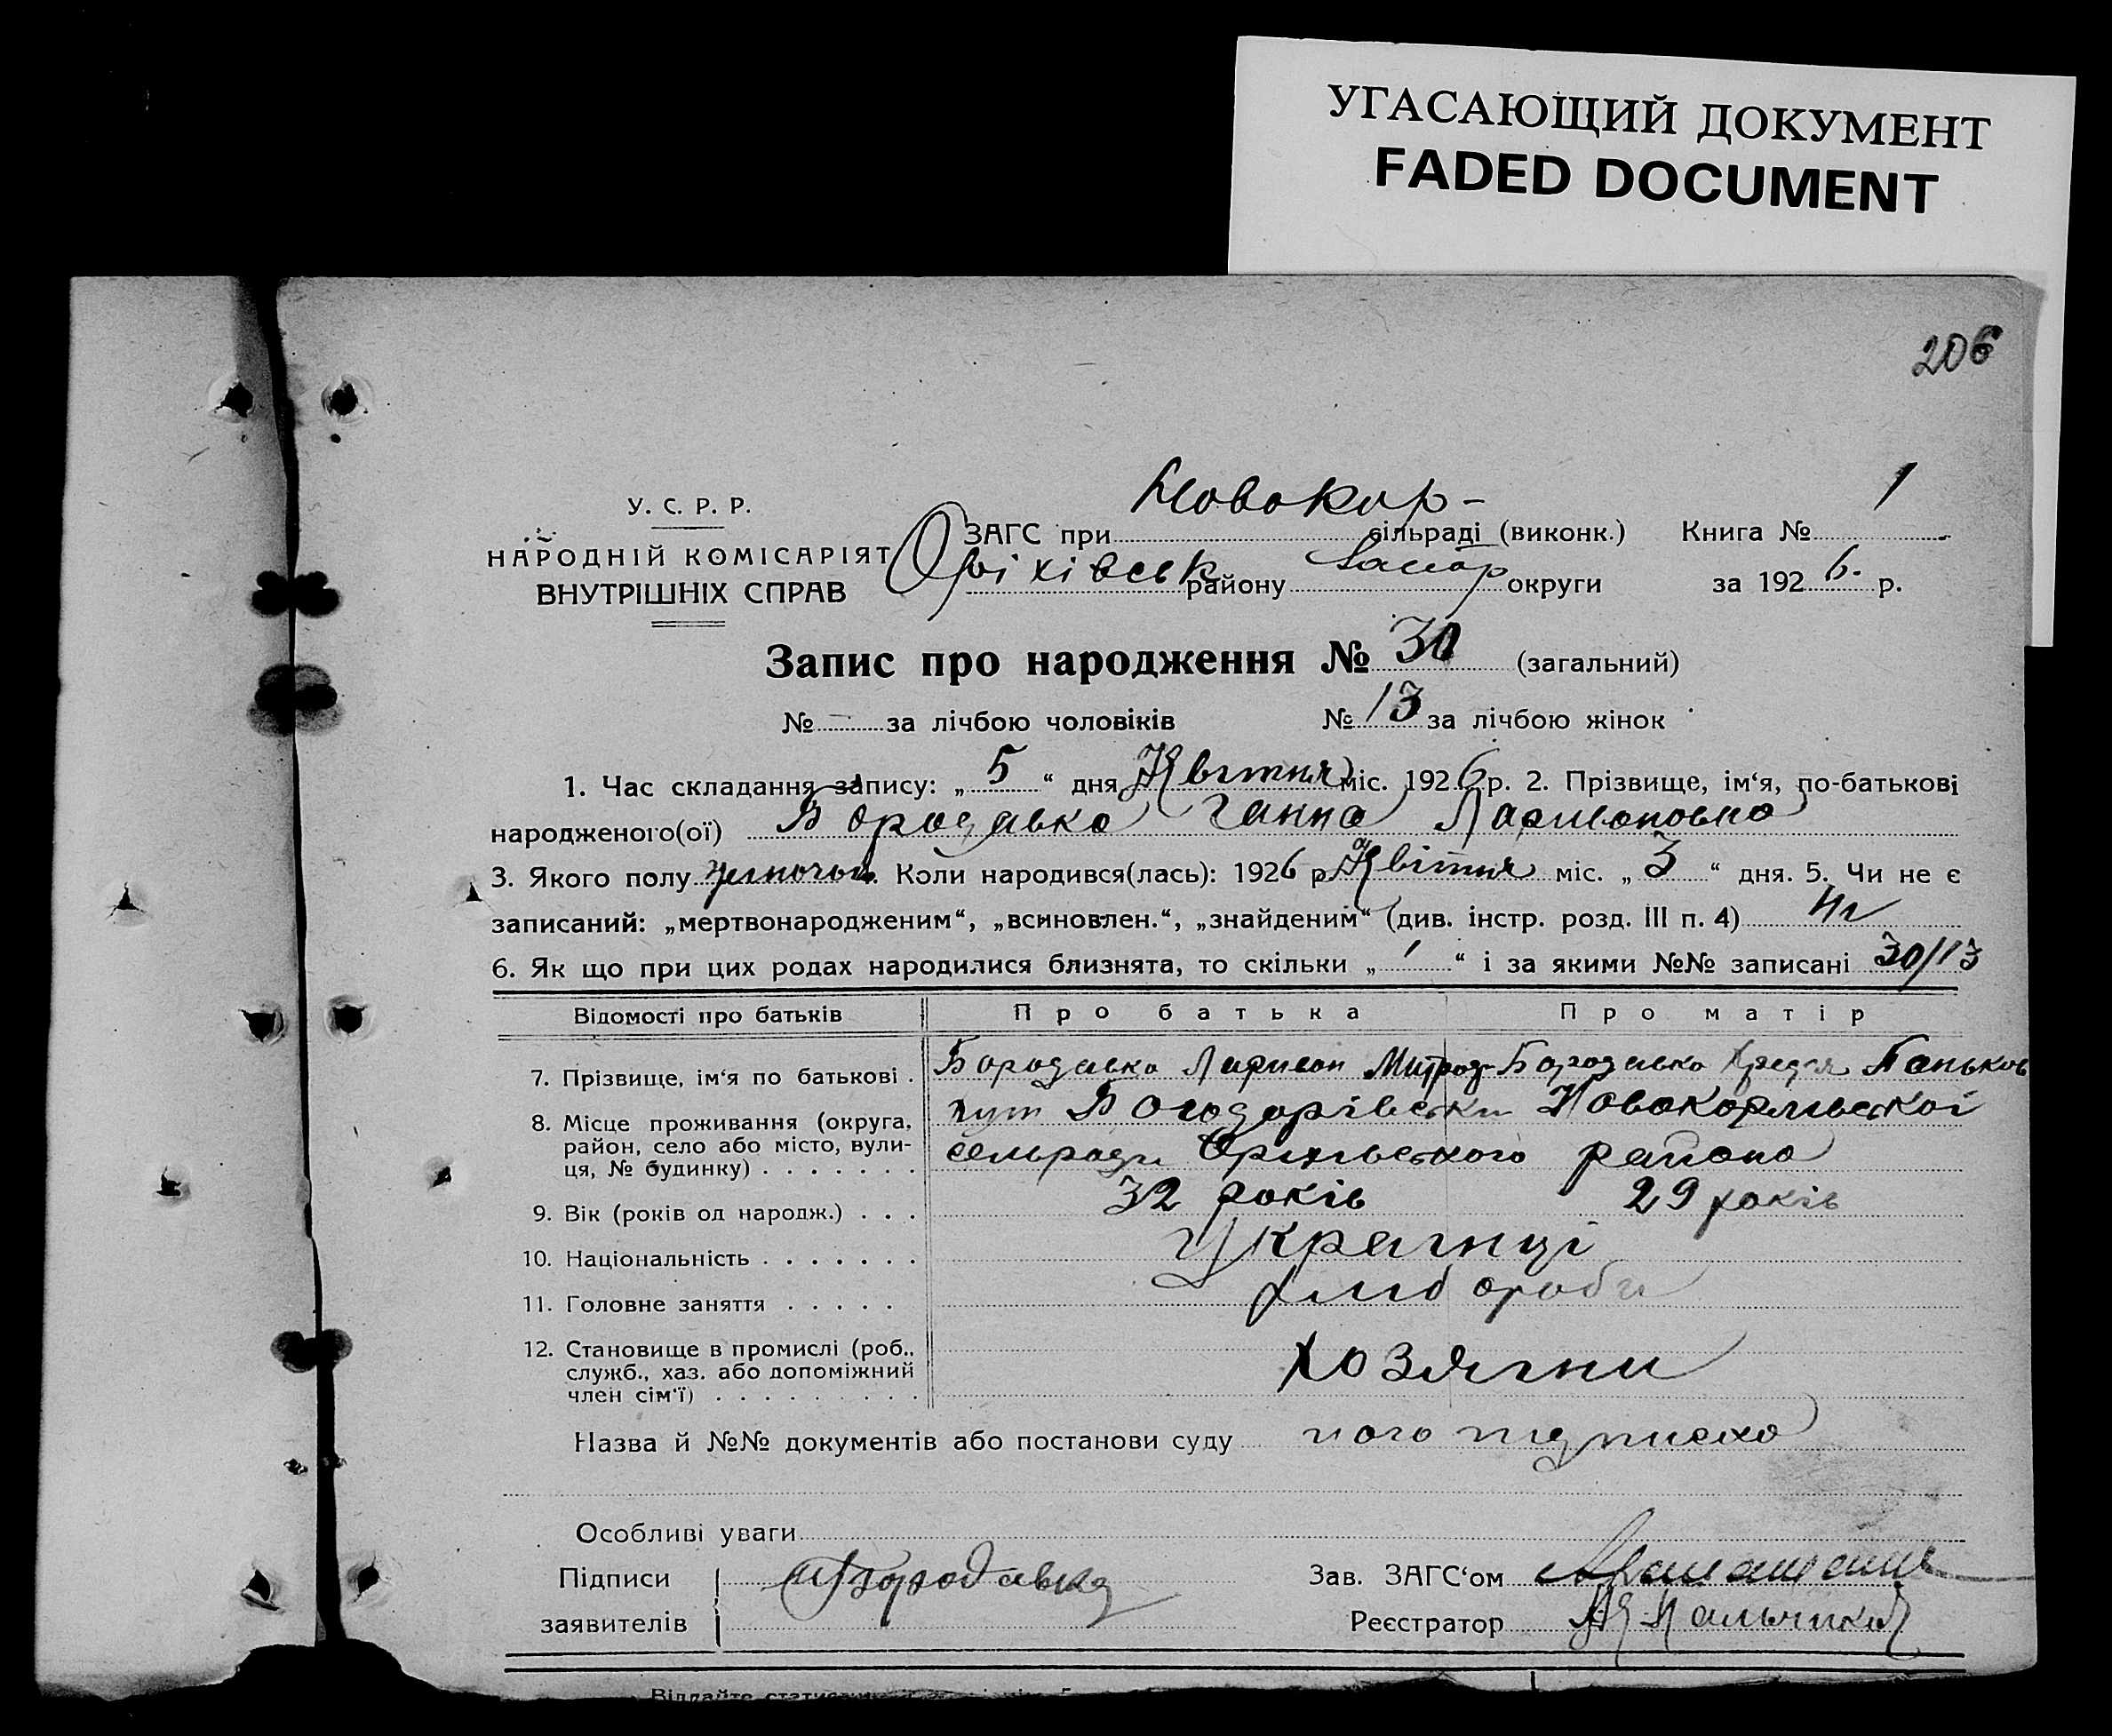 УГАСАЮЩИЙ ДОКУМЕНТ
FADED DOCUMENT
206
У. С. Р. Р.
НАРОДНІЙ КОМІСАРІЯТ
ВНУТРІШНІХ СПРАВ
ЗАГС при Новокар- сільраді (виконк.) Книга № 1
Оріхівськ району Запор округи за 1926 р.
Запис про народження № 30 (загальний)
№ — за лічбою чоловіків № 13 за лічбою жінок
1. Час складання запису: „5“ дня Квітня міс. 1926 р. 2. Прізвище, ім‘я, по-батькові
народженого(ої) Бородавка Ганна Ларионовна
3. Якого полу жіночої. Коли народився(лась): 1926 р Квітня міс. „3“ дня. 5. Чи не є
записаний: „мертвонародженим“, „всиновлен.“, „знайденим“ (див. інстр. розд. III п. 4) Ні
6. Як що при цих родах народилися близнята, то скільки „ ′ “ і за якими №№ записані 30/13
Відомості про батьків Про батька Про матір
7. Прізвище, ім‘я по батькові . Бородавка Ларион Митроф- Бородавка Паньков
8. Місце проживання (округа, район, село або місто, вулиця, № будинку) . . . . . . . хут Новокарлівської
сельради Оріхівського района
9. Вік (років од народж.) . . . 32 років 29 років
10. Національність . . . . . . . Українці
11. Головне заняття . . . . . Хлібороби
12. Становище в промислі (роб., служб., хаз. або допоміжний член сім‘ї) . . . . . . . . . Хозяїни
Назва й №№ документів або постанови суду його підписка
Особливі уваги
Підписи заявителів Бородавка
Зав. ЗАГС‘ом
Реєстратор